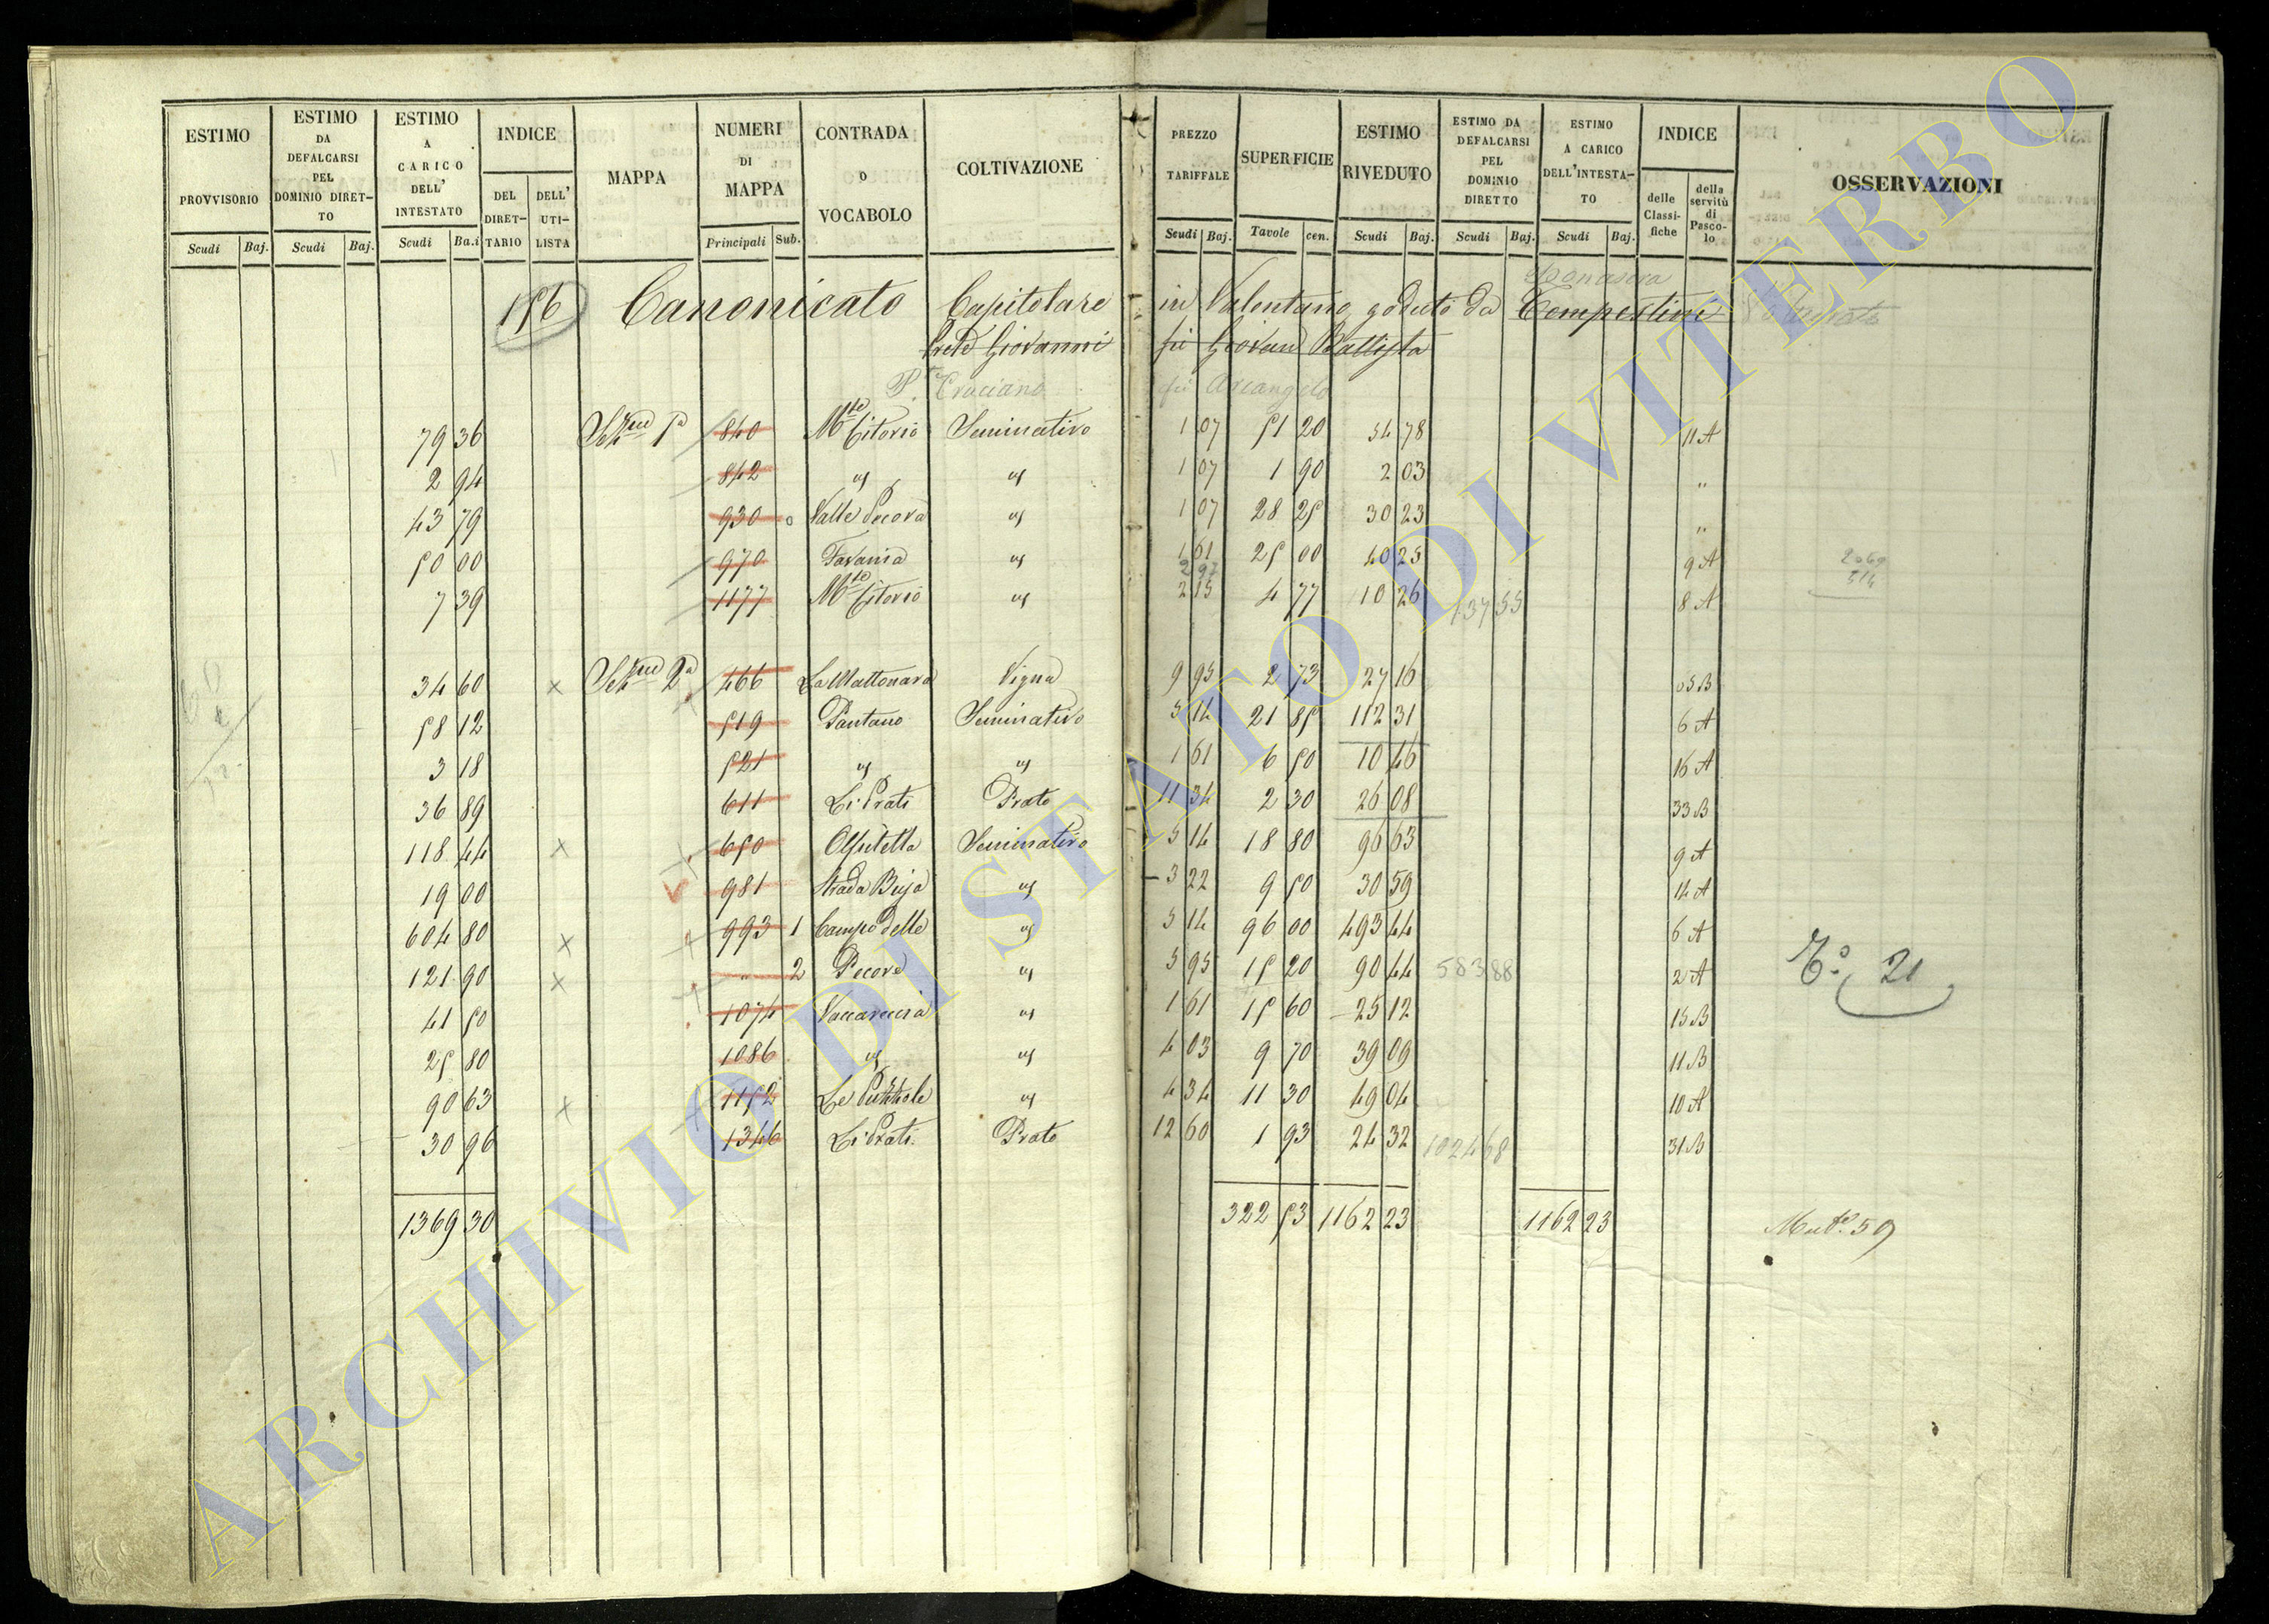 ESTIMO PROVVISORIO Scudi Baj. ESTIMO DA DEFALCARSI PEL DOMINIO DIRETTO Scudi Baj. ESTIMO A CARICO DELL' INTESTATO Scudi Ba.i INDICE DEL DIRETTARIO DELL' UTILISTA MAPPA NUMERI DI MAPPA Principali Sub. CONTRADA O VOCABOLO COLTIVAZIONE PREZZO TARIFFALE Scudi Baj. SUPERFICIE Tavole cen. ESTIMO RIVEDUTO Scudi Baj. ESTIMO DA DEFALCARSI PEL DOMINIO DIRETTO Scudi Baj. ESTIMO A CARICO DELL'INTESTATO Scudi Baj. INDICE delle Classifiche della servitù di Pascolo OSSERVAZIONI
156 Canonicato Capitolare in Valentano goduto da Tempestini
Prete Giovanni fu Giovan Battista
fu Arcangelo
79 36 840 M.te Citorio Seminativo 1 07 51 20 54 78 11 A
2 94 842 " " 1 07 1 90 2 03 "
43 79 930 Valle Pecora " 1 07 28 25 30 23 "
50 00 970 " 1 61 25 00 40 25 9 A
7 39 1177 M.te Citorio " 2 15 4 77 10 26 137 55 8 A
34 60 x 466 La Mattonara Vigna 9 95 2 73 27 16
58 12 519 Pantano Seminativo 5 14 21 85 112 31 6 A
3 18 521 " " 1 61 6 50 10 46 16 A
36 89 611 Li Prati Prato 11 34 2 30 26 08 33 B
118 44 x 650 Seminativo 5 14 18 80 96 63 9 A
19 00 981 Strada Buja " 3 22 9 50 30 59 14 A
604 80 x 993 1 Campo delle " 5 14 96 00 493 44 6 A
121 90 x " 2 Pecore " 5 95 15 20 90 44 583 88 2 A
21
41 50 1074 Vaccareccia " 1 61 15 60 25 12 15 B
25 80 1086 " " 4 03 9 70 39 09 11 B
90 63 x 1152 Le Puzzole " 4 34 11 30 49 04 10 A
30 96 1346 Li Prati Prato 12 60 1 93 24 32 1024 68 31 B
1369 30 322 53 1162 23 1162 23 59
ARCHIVIO DI STATO DI VITERBO